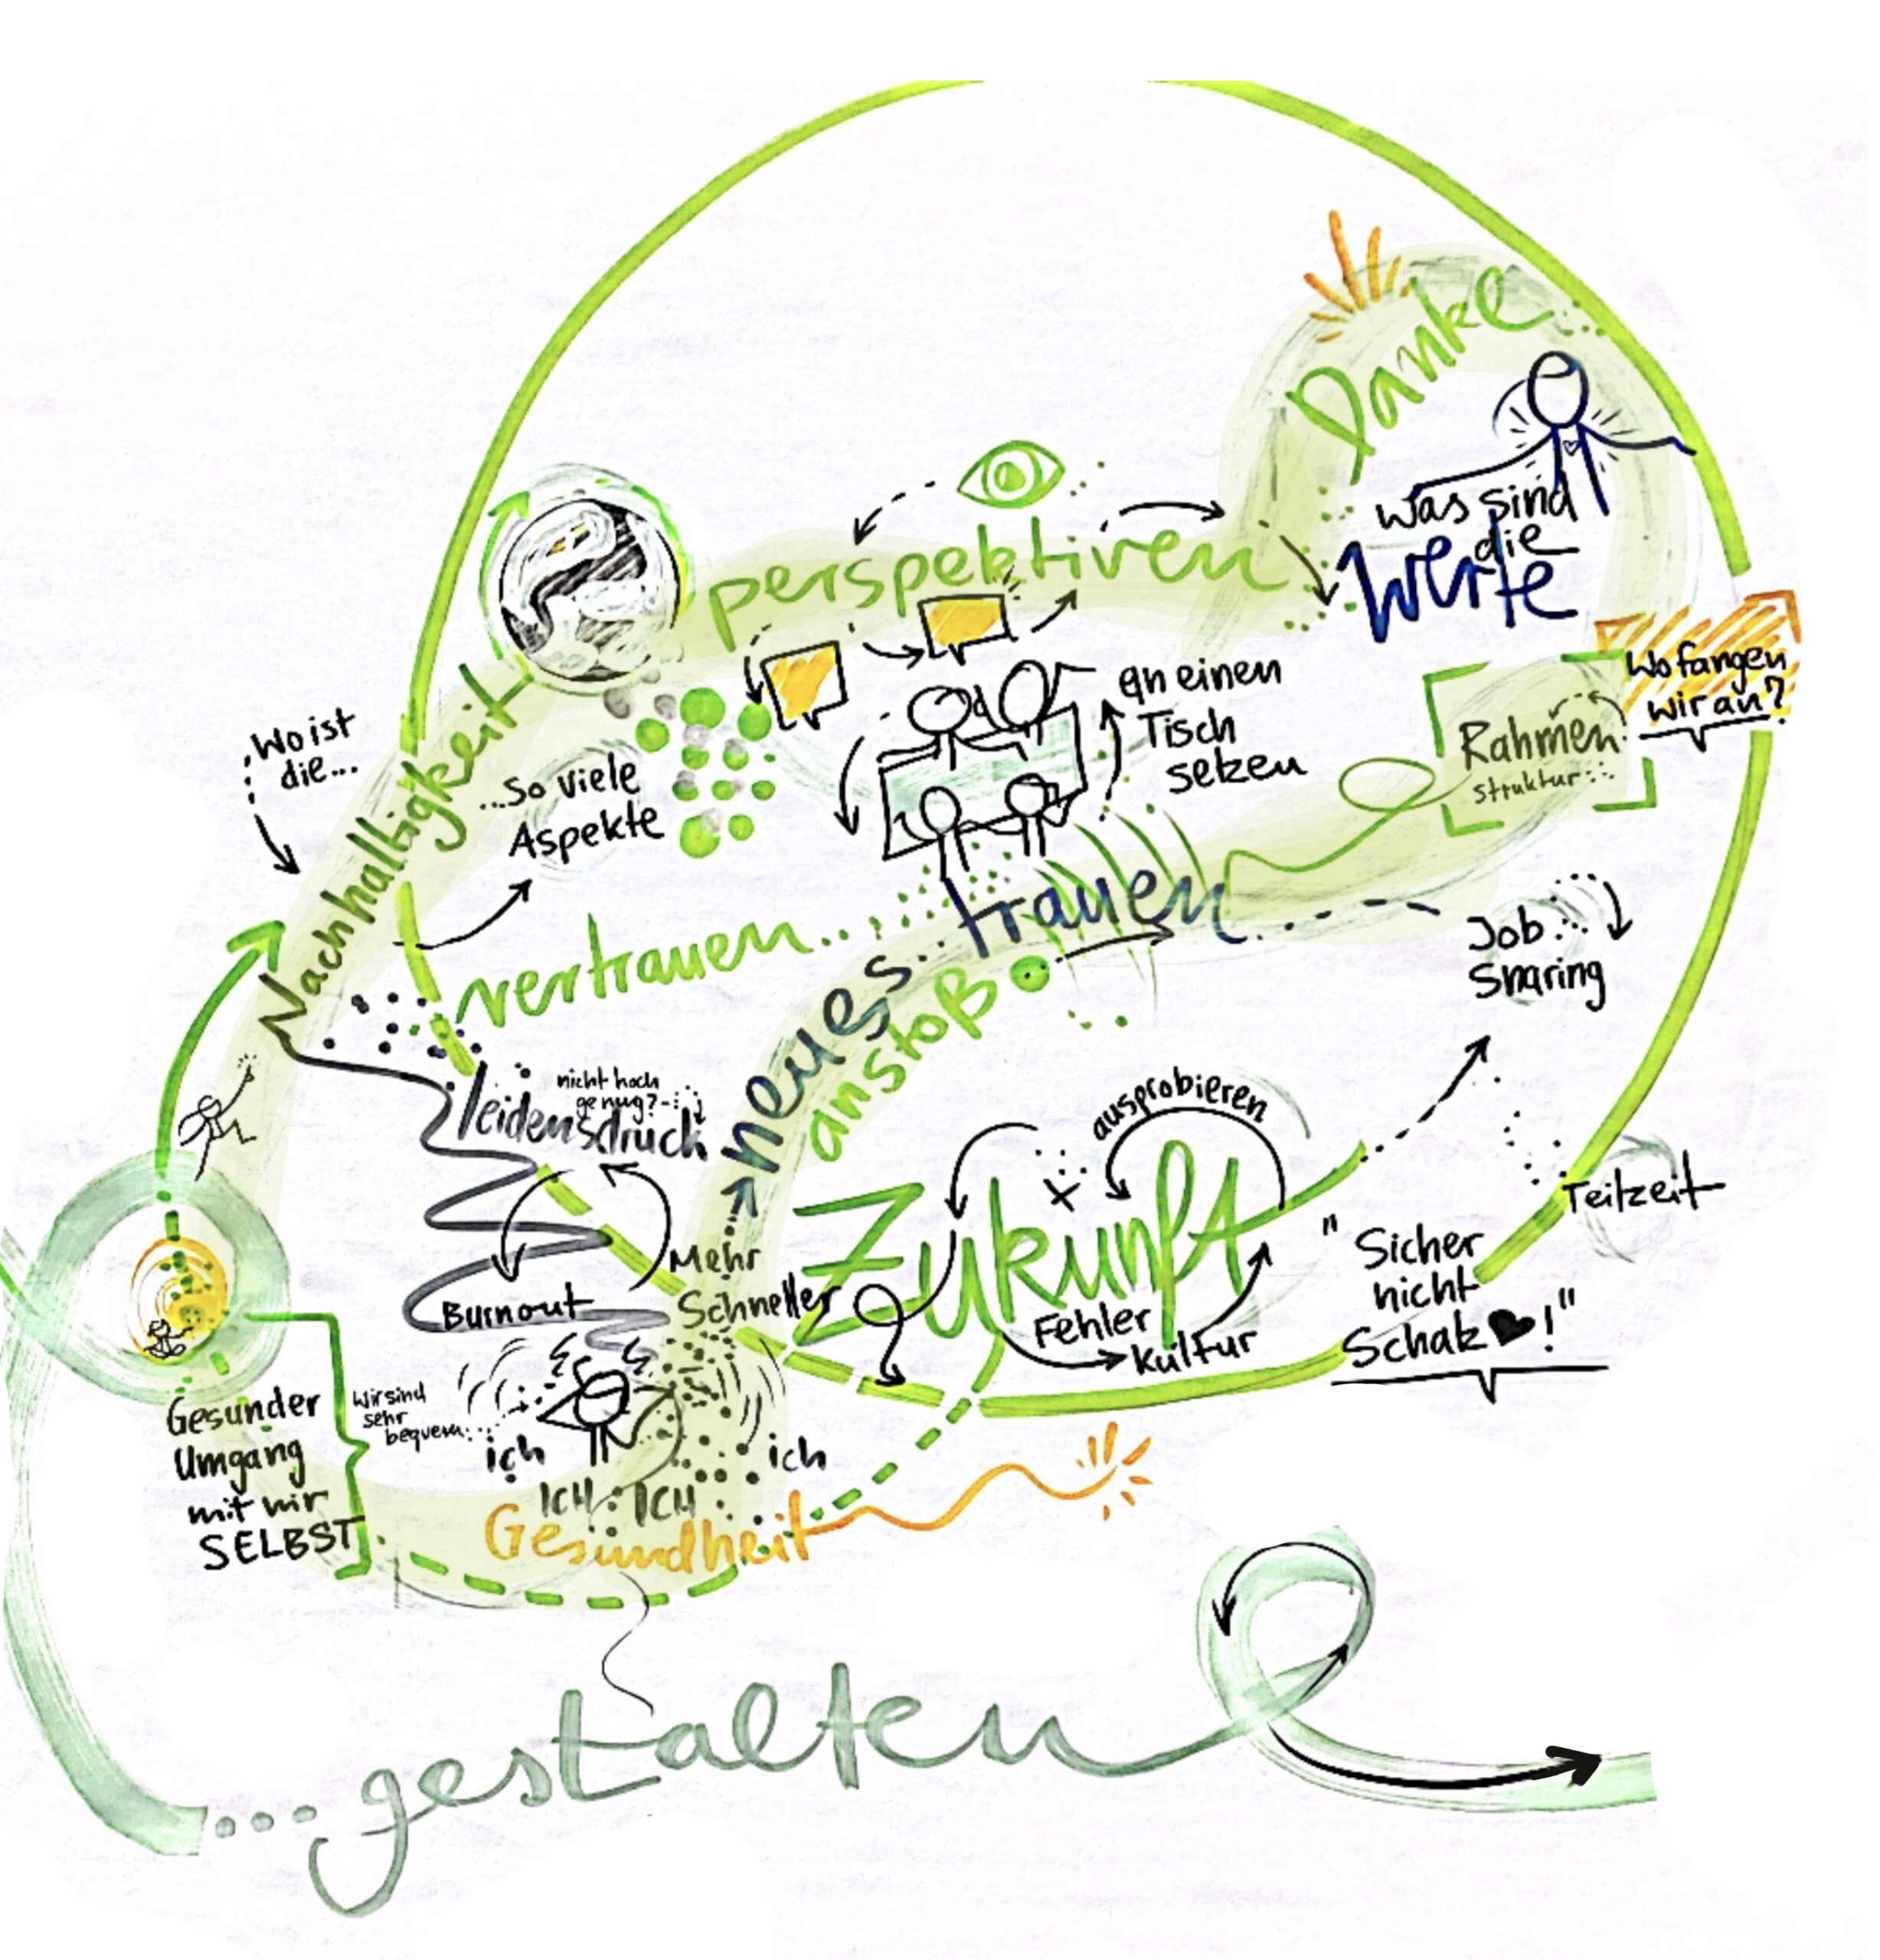 Danke
perspektiven
Was sind
die
Werte
Wo fangen
wir an?
Rahmen
Struktur
an einen
Tisch
setzen
Wo ist
die...
Nachhaltigkeit
...So viele
Aspekte
vertrauen...
neues.. trauen
anstoß
Job
Sharing
leidensdruck
nicht hoch
genug?
ausprobieren
Zukunft
Fehler
Kultur
Teilzeit
"Sicher
nicht
Schatz♥!"
Mehr
Schneller
Burnout
Gesunder
Umgang
mit mir
SELBST
Wir sind
sehr
bequem...
ich
ICH
ICH
ich
Gesundheit
...gestalten